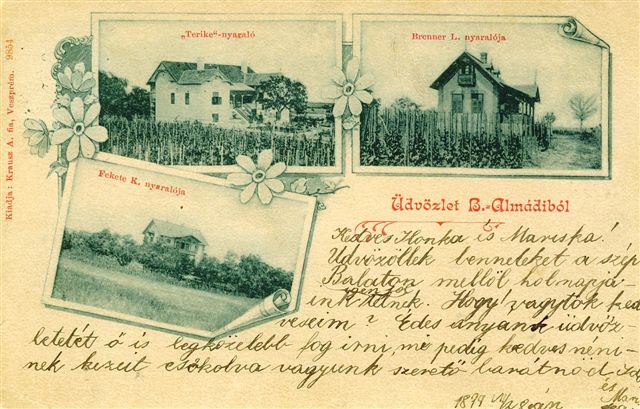 „Terike“-nyaraló
Brenner L. nyaralója
Kiadja: Krausz A. fia, Veszprém. 9854
Fekete K. nyaralója
Üdvözlet B.-Almádiból
Kedves Ilonka és Mariska!
Üdvözöllek benneteket a szép
Balaton mellől holnapja
igen jól
ink telnek. Hogy vagytok ked
veseim? Édes anyánk üdvöz
letét ő is legközelebb fog irni, me pedig kedves néni-
nek kezeit csókolva vagyunk szerető barátnőd
és
1899